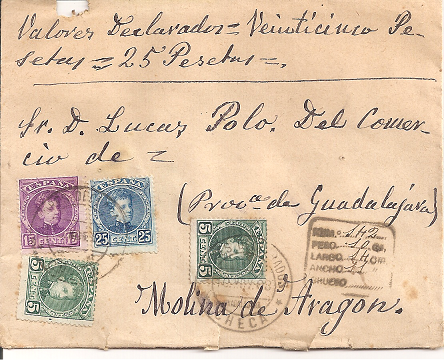 Valores Declarados = Veinticinco Pe-
setas = 25 Pesetas =.
Sr. D. Lucas Polo. Del Comer-
cio de =
(Provᵃ de Guadalajara)
Molina de Aragon.
ESPAÑA
15 CENT 15
ESPAÑA
25 CENT 25
ESPAÑA
5 CENT 5
ESPAÑA
5 CENT 5
NUM. 142
PESO
LARGO 14
ANCHO 11
GRUESO